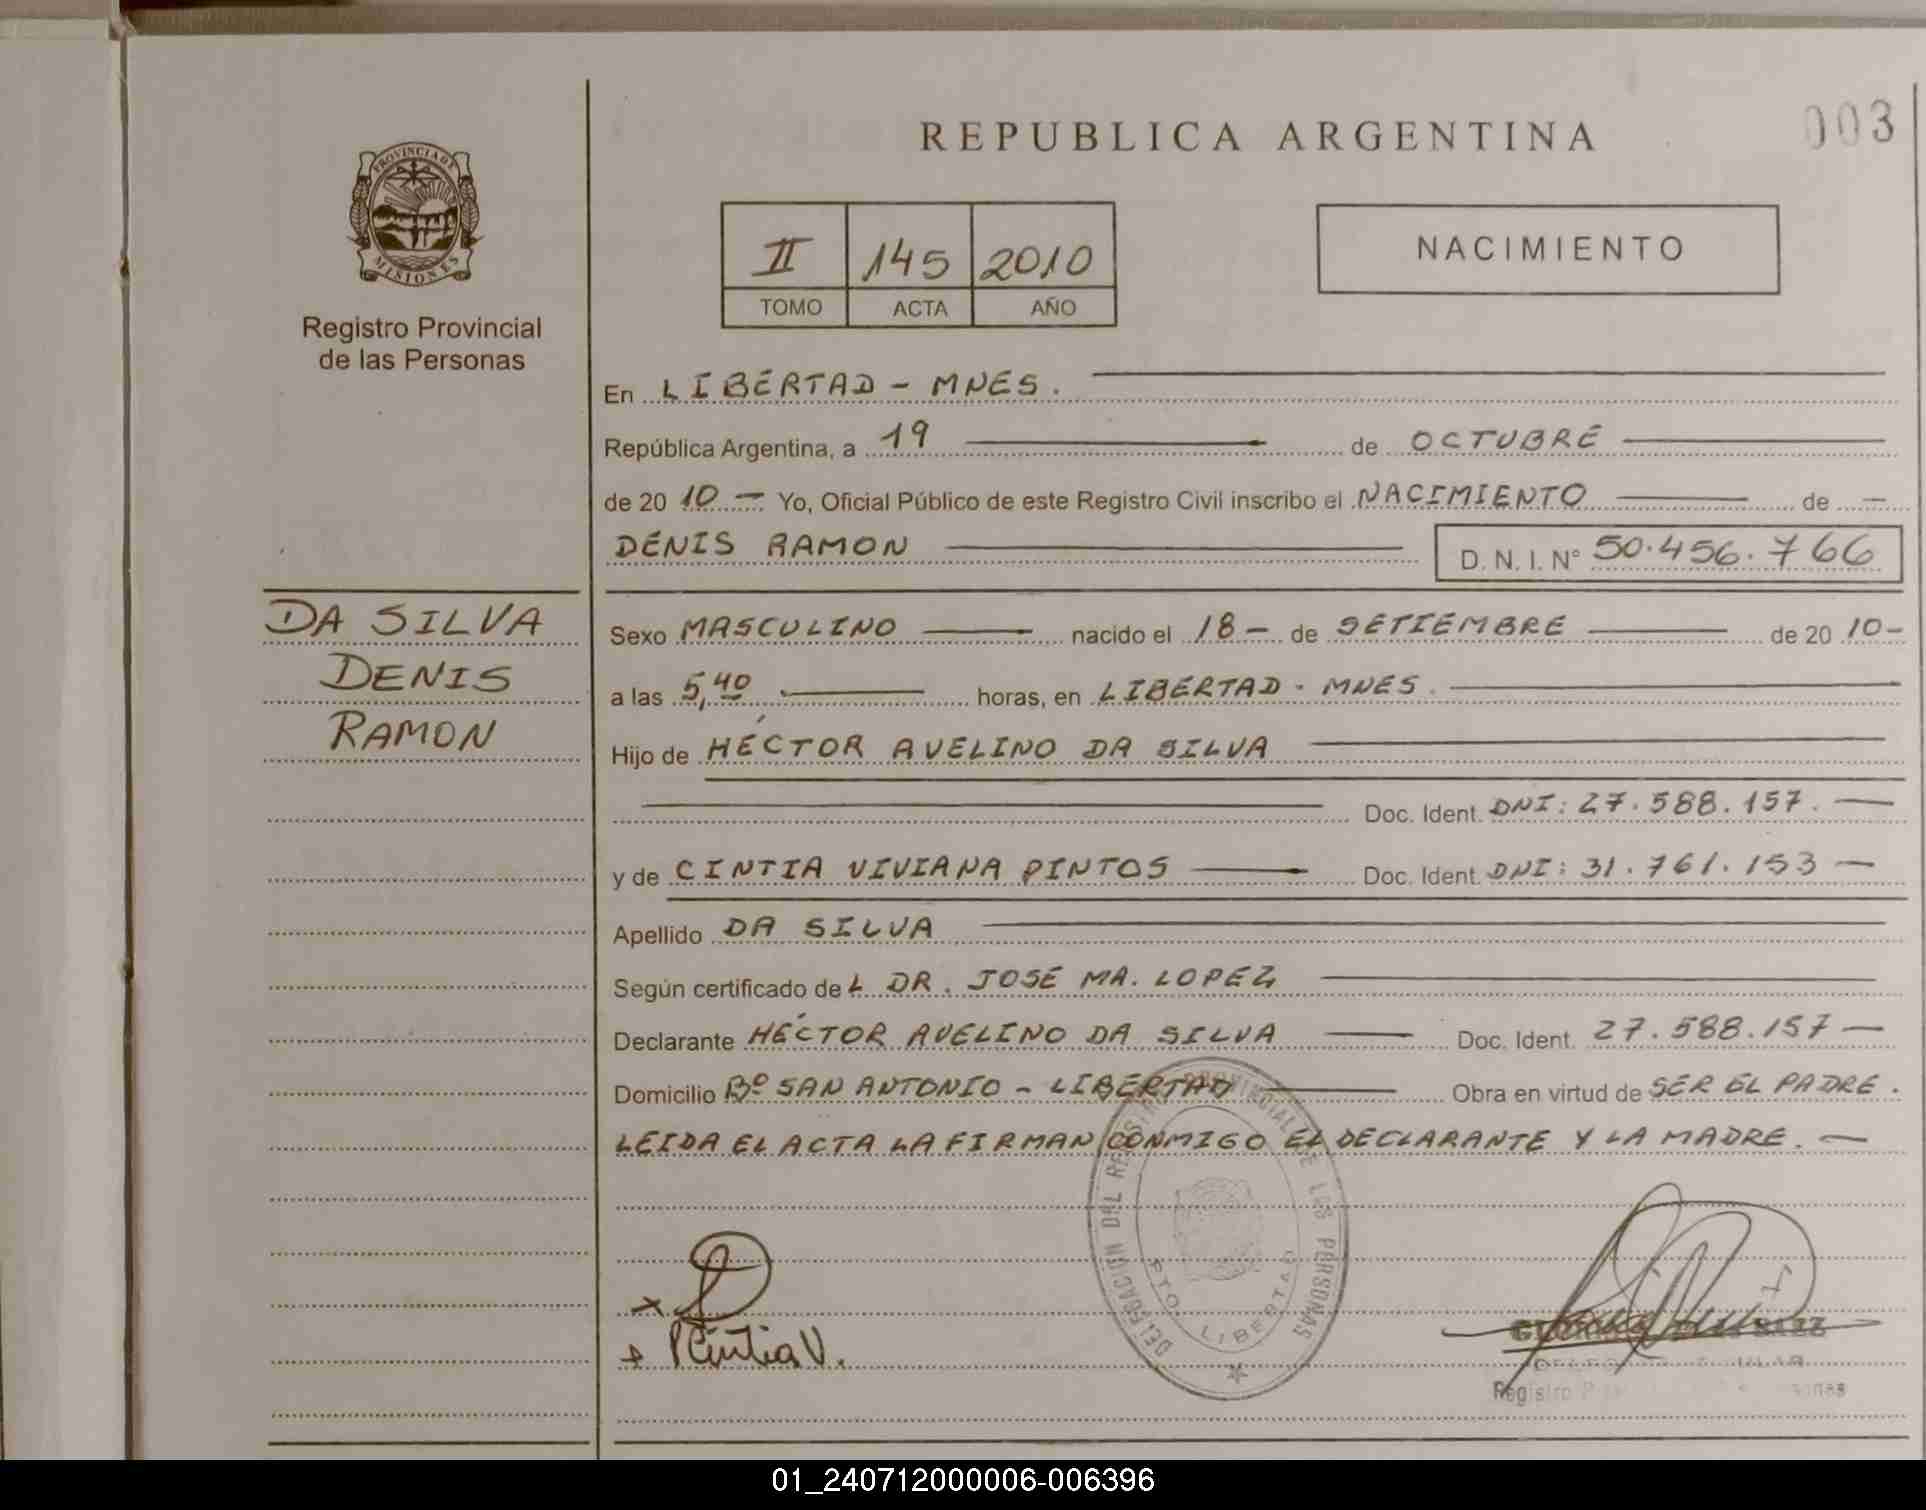 REPUBLICA ARGENTINA
003
PROVINCIA DE
MISIONES
Registro Provincial
de las Personas
II 145 2010
TOMO ACTA AÑO
NACIMIENTO
En LIBERTAD - MNES.
República Argentina, a 19 de OCTUBRE
de 20 10 - Yo, Oficial Público de este Registro Civil inscribo el NACIMIENTO de -
DENIS RAMON D. N. I. N° 50.456.766
DA SILVA
DENIS
RAMON
Sexo MASCULINO nacido el 18 - de SETIEMBRE de 20 10 -
a las 5,40 horas, en LIBERTAD - MNES.
Hijo de HÉCTOR AVELINO DA SILVA
Doc. Ident. DNI: 27.588.157. -
y de CINTIA VIVIANA PINTOS Doc. Ident. DNI: 31.761.153 -
Apellido DA SILVA
Según certificado de L DR. JOSÉ MA. LOPEZ
Declarante HÉCTOR AVELINO DA SILVA Doc. Ident. 27.588.157 -
Domicilio Bº SAN ANTONIO - LIBERTAD Obra en virtud de SER EL PADRE.
LEIDA EL ACTA LA FIRMAN CONMIGO EL DECLARANTE Y LA MADRE. -
DELEGACION DEL REGISTRO PROVINCIAL DE LAS PERSONAS
PTO. LIBERTAD
x
x PCintia V.
Registro
01_240712000006-006396